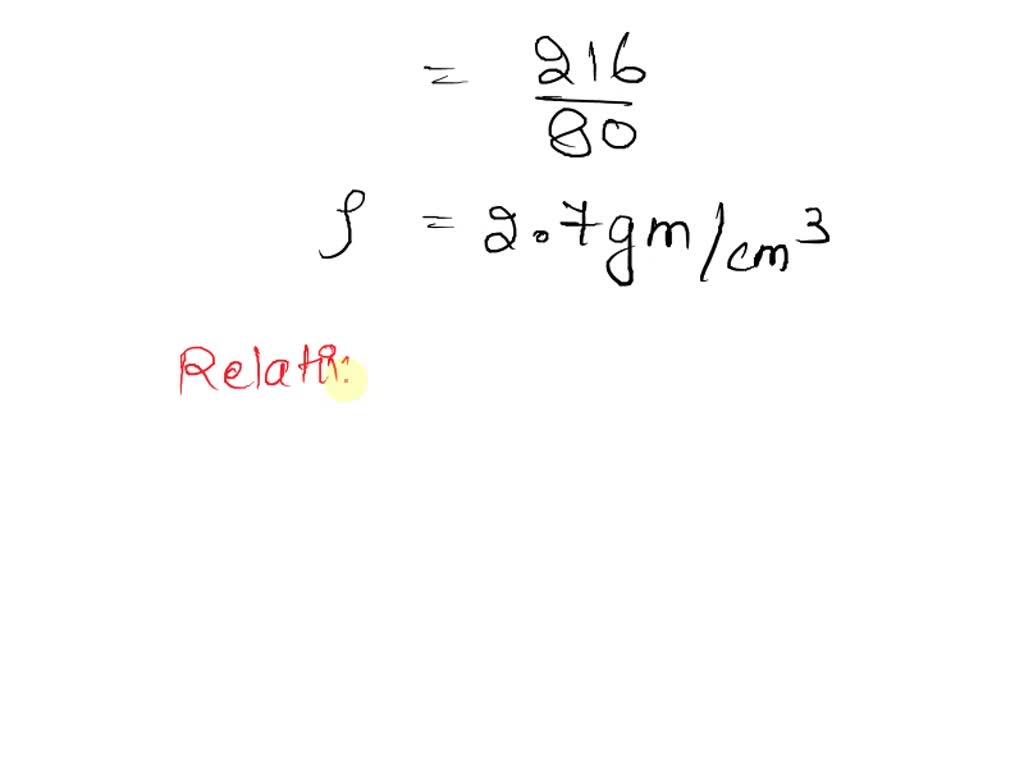 = 216
80
ρ = 2.7gm/cm³
Relati